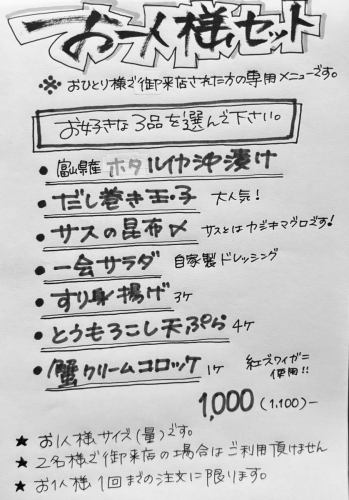 お一人様セット
※ おひとり様で御来店された方の専用メニューです。
お好きな3品を選んで下さい。
• 富山県産 ホタルイカ沖漬け
• だし巻き玉子 大人気!
• サスの昆布〆 サスとはカジキマグロです!
• 一会サラダ 自家製ドレッシング
• すり身揚げ 3ヶ
• とうもろこし天ぷら 4ヶ
• 蟹クリームコロッケ 1ヶ 紅ズワイガニ使用!!
1,000 (1,100)−
★ お1人様サイズ(量)です。
★ 2名様で御来店の場合はご利用頂けません
★ お1人様1回までの注文に限ります。